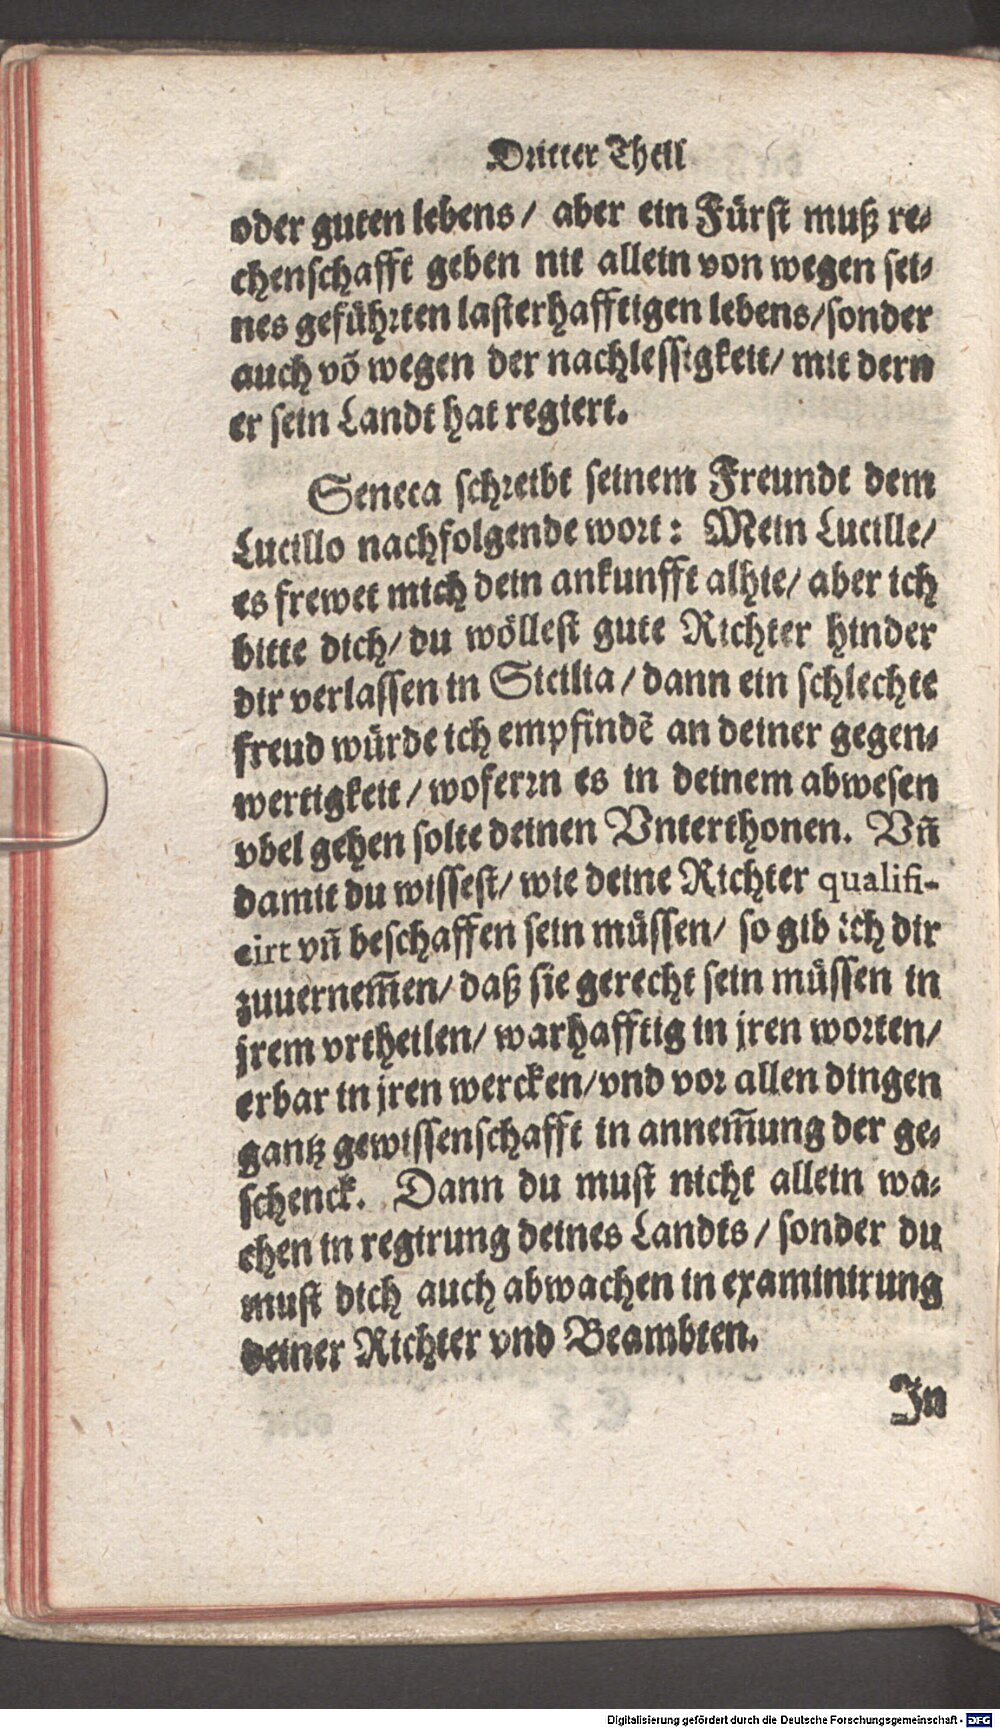 Dritter Theil
oder guten lebens / aber ein Fürst muß re⸗
chenschafft geben nit allein von wegen sei⸗
nes geführten lasterhafftigen lebens / sonder
auch võ wegen der nachlessigkeit / mit dern
er sein Landt hat regiert.
Seneca schreibt seinem Freundt dem
Lucillo nachfolgende wort: Mein Lucille /
es frewet mich dein ankunfft alhie / aber ich
bitte dich / du wöllest gute Richter hinder
dir verlassen in Sicilia / dann ein schlechte
freud würde ich empfindẽ an deiner gegen⸗
wertigkeit / woferrn es in deinem abwesen
vbel gehen solte deinen Vnterthonen. Vñ
damit du wissest / wie deine Richter qualifi-
cirt vñ beschaffen sein müssen / so gib ich dir
zuuernem̃en / daß sie gerecht sein müssen in
jrem vrtheilen / warhafftig in jren worten /
erbar in jren wercken / vnd vor allen dingen
gantz gewissenschafft in annem̃ung der ge⸗
schenck. Dann du must nicht allein wa⸗
chen in regirung deines Landts / sonder du
must dich auch abwachen in examinirung
deiner Richter vnd Beambten.
In
Digitalisierung gefördert durch die Deutsche Forschungsgemeinschaft - DFG